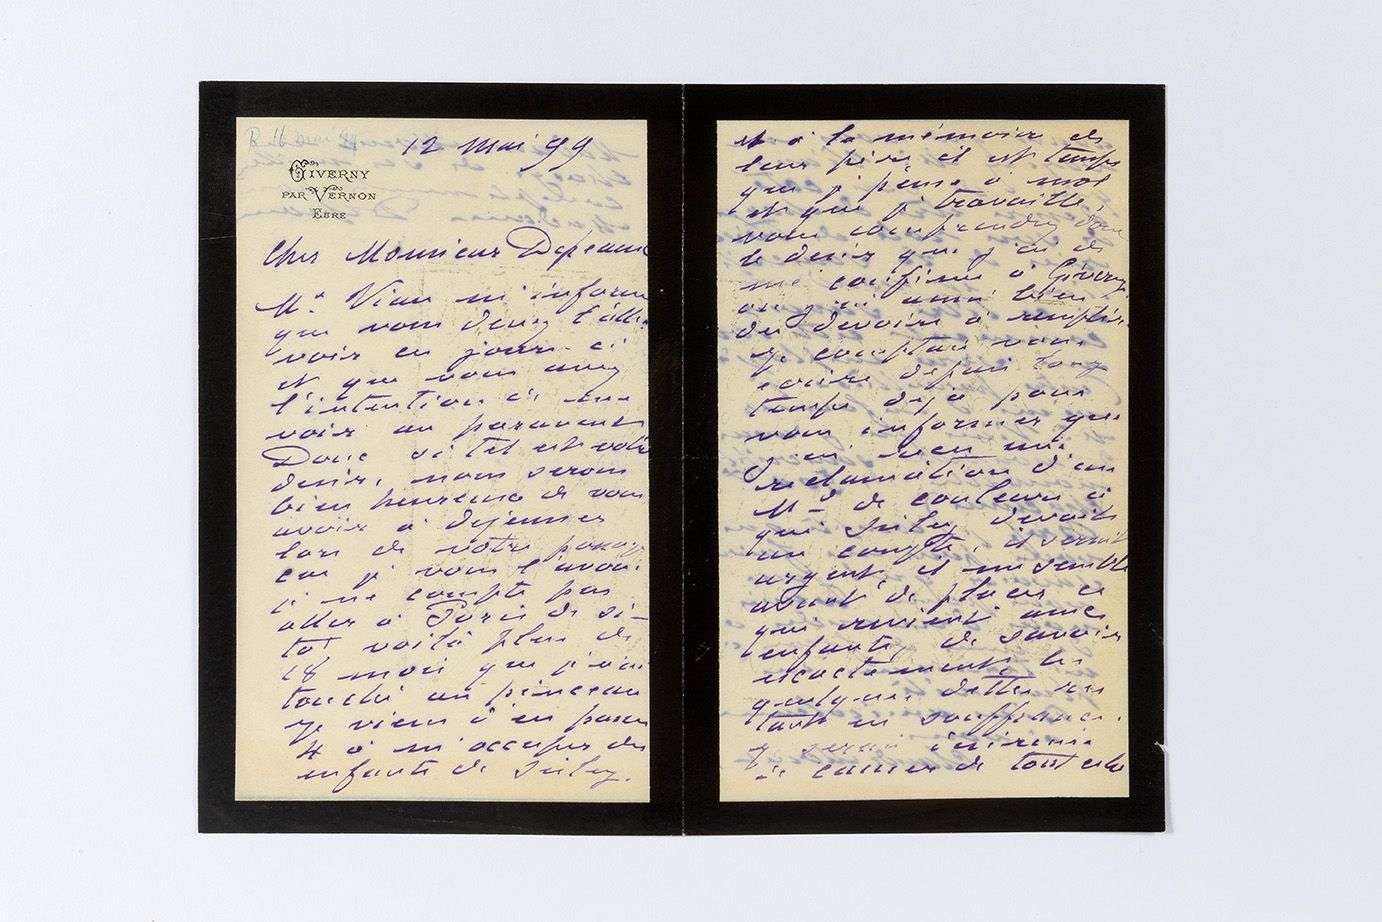 R 16 mai 99
12 mai 99
GIVERNY
PAR VERNON
EURE
Cher Monsieur Depeaux
Mr Viau m'informe
que vous devez l'aller
voir ces jours-ci
et que vous avez
l'intention de me
voir auparavant
Donc si tel est votre
désir, nous serons
bien heureux de vous
avoir à déjeuner
lors de votre passage
car je vous l'avoue
je ne compte pas
aller à Paris de si-
tôt voilà plus de
18 mois que je n'ai
touché un pinceau
je viens d'en passer
4 à m'occuper des
enfants de Sisley.
et à la mémoire de
leur père il est temps
que je pense à moi
et que je travaille,
vous comprendrez donc
le désir que j'ai de
me confiner à Giverny
où j'ai aussi bien
des devoirs à remplir.
Je comptais vous
écrire depuis long
temps déjà pour
vous informer que
j'ai reçu une
réclamation d'un
Md de couleurs à
qui Sisley devait
un compte, il serait
urgent il me semble
avant de placer ce
qui revient aux
enfants, de savoir
exactement les
quelques dettes res
tant en souffrance.
Je serais
de causer de tout cela